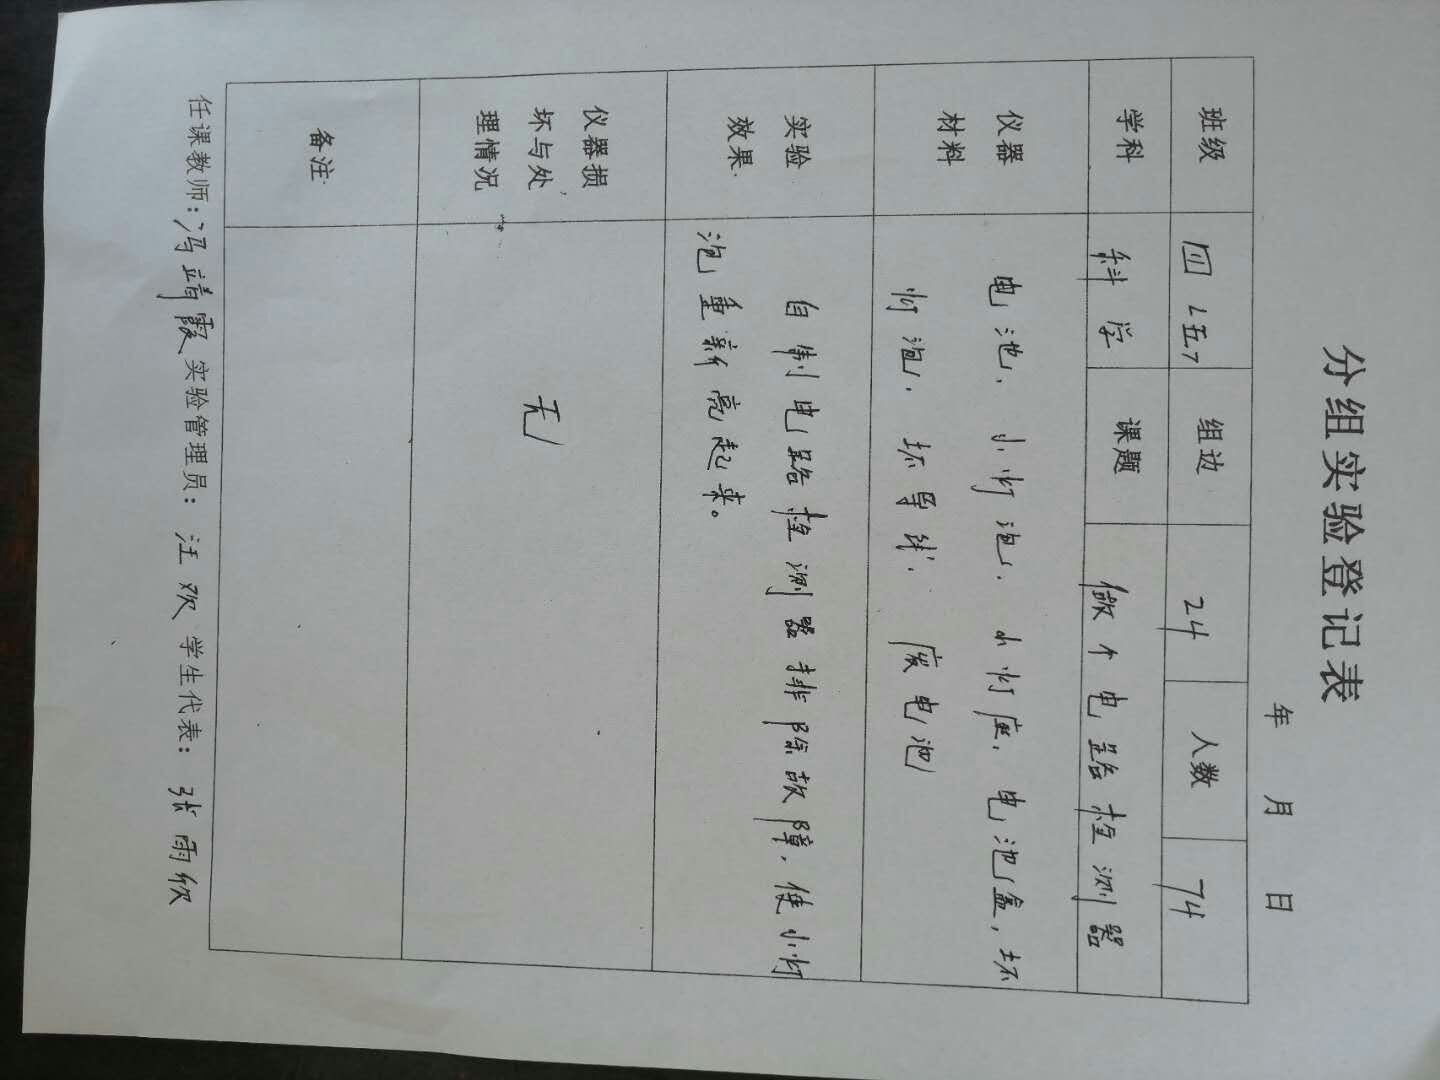 分组实验登记表
年 月 日
班级 四<五> 组边 24 人数 74
学科 科学 课题 做个电路检测器
仪器 电池、小灯泡、小灯座、电池盒,坏
材料 灯泡、坏导线、废电池
实验 自制电路检测器排除故障,使小灯
效果 泡重新亮起来。
仪器损
坏与处 无
理情况
备注
任课教师:冯靖霞 实验管理员: 汪欢 学生代表: 张雨欣